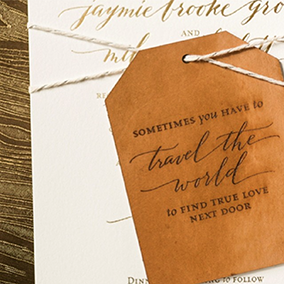 jaymie brooke
AND
SOMETIMES you HAVE to
travel the
world
to FIND TRUE LOVE
NEXT DOOR
to FOLLOW